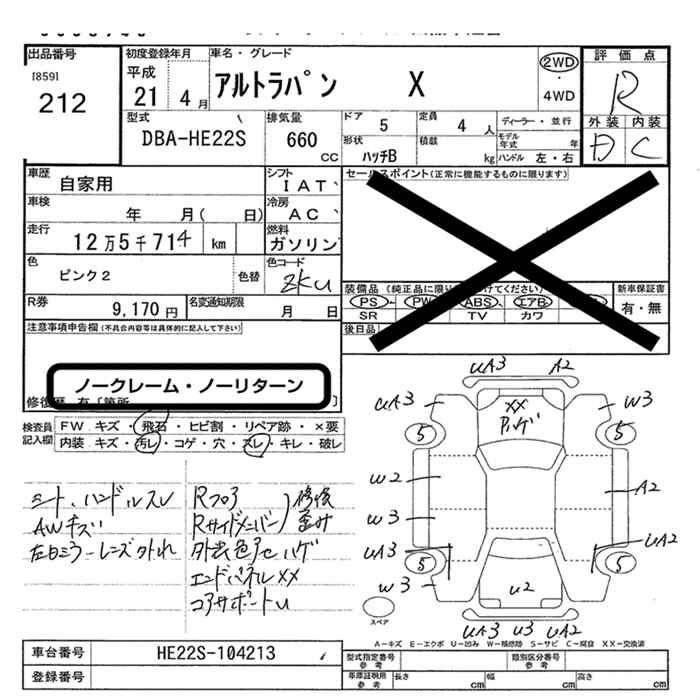 出品番号
[859]
212
初度登録年月
平成
21 4月
車名・グレード
アルトラパン X
2WD
・
4WD
評価点
R
外装 内装
D C
型式
DBA-HE22S
排気量
660
CC
ドア 5
定員 4 人
形状
ハッチB
積載
kg
ディーラー・並行
モデル年式 年
ハンドル 左・右
車歴
自家用
シフト
IAT
車検
年 月( 日)
冷房
AC
走行
12万5千714 km
燃料
ガソリン
色
ピンク2
色替
色コード
ZKU
R券
9,170円
名変通知期限
月 日
セールスポイント(正常に機能するものに限ります)
装備品(純正品に限り
けてください)
PS PW ABS エアB
SR TV カワ
新車保証書
有・無
後日品
注意事項申告欄(不具合内容等は具体的に記入して下さい)
ノークレーム・ノーリターン
修復歴 有[箇所 ]
検査員記入欄
FW.キズ・飛石・ヒビ割・リペア跡・×要
内装.キズ・汚レ・コゲ・穴・スレ・キレ・破レ
シート、ハンドルスレ
AWキズ
左ドミラーレンズ外れ
Rフロア
Rサイドメンバー
修復
歪み
外装色アセハゲ
エンドパネルXX
コアサポートU
UA3 A2
UA3 W3
XX
ハゲ
5 5
W2
W3
A2
UA3 UA2
5 5
W3
U2
UA3 U3 UA2
スペア
A－キズ E－エクボ U－凹み W－補修跡 S－サビ C－腐食 XX－交換済
車台番号
HE22S-104213
登録番号
型式指定番号
参考
類別区分番号
参考
車庫証明用
参考
長さ cm 幅 cm 高さ cm